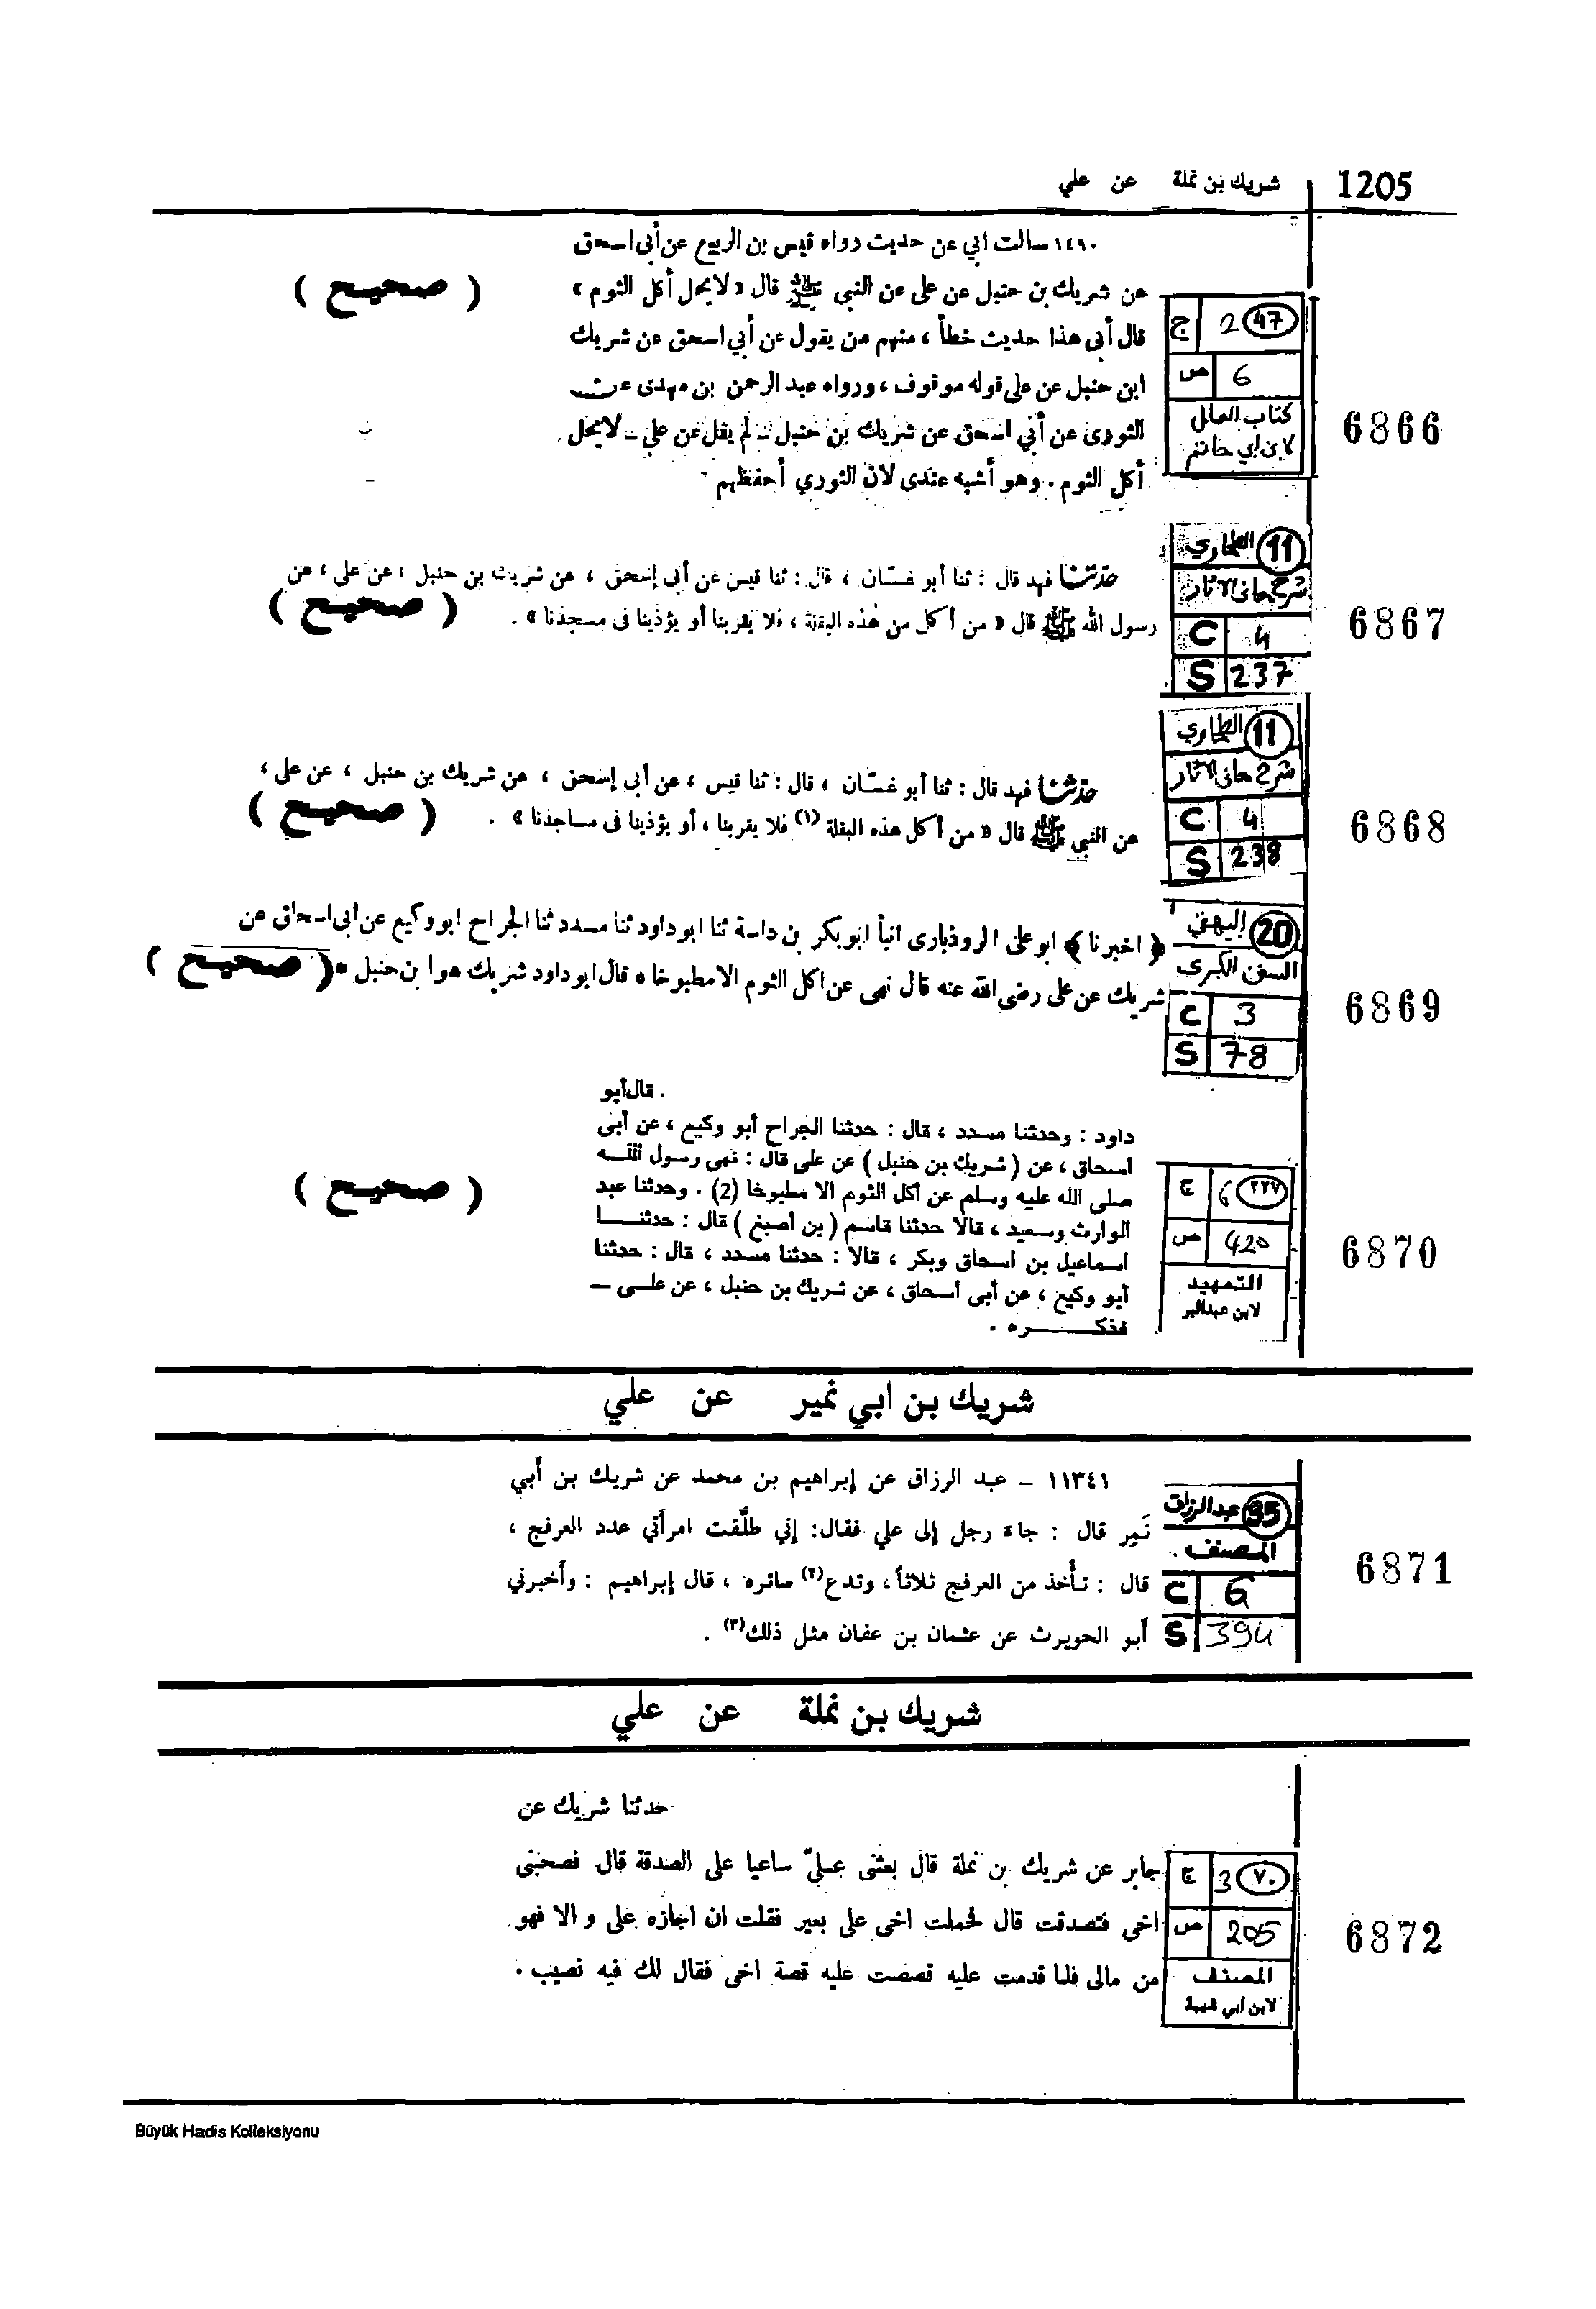 1205 شريك بن نملة عن علي
١٤٩٠ سالت ابي عن حديث رواه قيس بن الربيع عن أبى اسحق
عن شريك بن حنبل عن على عن النبي ﷺ قال « لا يحل أكل الثوم »
( صحيح )
قال أبى هذا حديث خطأ ، منهم من يقول عن أبي اسحق عن شريك
ابن حنبل عن على قوله موقوف ، ورواه عبد الرحمن بن مهدى عن
الثورى عن أبي اسحق عن شريك بن حنبل - لم يقل عن علي - لا يحل
أكل الثوم . وهو أشبه عندى لان الثوري أحفظهم
47 2 ج
6 ص
كتاب العلل
لابن ابي حاتم
6866
حدثنا فهد قال : ثنا أبو غسّان ، قال : ثنا قيس عن أبى إسحق ، عن شريك بن حنبل ، عن على ، عن
رسول الله ﷺ قال « من أكل من هذه البقلة ، فلا يقربنا أو يؤذينا فى مسجدنا » .
( صحيح )
11 الطحاوي
شرح معاني الاثار
C 4
S 237
6867
حدثنا فهد قال : ثنا أبو غسّان ، قال : ثنا قيس ، عن أبى إسحق ، عن شريك بن حنبل ، عن على ،
عن النبي ﷺ قال « من أكل هذه البقلة (١) فلا يقربنا ، أو يؤذينا فى مساجدنا » .
( صحيح )
11 الطحاوي
شرح معاني الاثار
C 4
S 238
6868
﴿ اخبرنا ﴾ ابو على الروذبارى انبأ ابو بكر بن داسة ثنا ابو داود ثنا مسدد ثنا الجراح ابو وكيع عن ابى اسحاق عن
شريك عن على رضى الله عنه قال نهى عن اكل الثوم الا مطبوخا * قال ابو داود شريك هو ابن حنبل *
( صحيح )
20 البيهقي
السنن الكبرى
C 3
S 78
6869
. قال أبو
داود : وحدثنا مسدد ، قال : حدثنا الجراح أبو وكيع ، عن أبى
اسحاق ، عن ( شريك بن حنبل ) عن على قال : نهى رسول الله
صلى الله عليه وسلم عن أكل الثوم الا مطبوخا (2) . وحدثنا عبد
( صحيح )
الوارث وسعيد ، قالا حدثنا قاسم ( بن أصبغ ) قال : حدثنا
اسماعيل بن اسحاق وبكر ، قالا : حدثنا مسدد ، قال : حدثنا
أبو وكيع ، عن أبى أسحاق ، عن شريك بن حنبل ، عن على —
فذكره .
٢٢٧ 6 ج
420 ص
التمهيد
لابن عبدالبر
6870
شريك بن ابي نمير عن علي
١١٣٤١ – عبد الرزاق عن إبراهيم بن محمد عن شريك بن أبي
نَمِير قال : جاءَ رجل إلى علي فقال: إني طلَّقت امرأتي عدد العرفج ،
قال : تأْخذ من العرفج ثلاثاً ، وتدع(٢) سائره ، قال إبراهيم : وأَخبرني
أَبو الحويرث عن عثمان بن عفان مثل ذلك(٣) .
95 عبدالرزاق
المصنف
C 6
S 394
6871
شريك بن نملة عن علي
حدثنا شريك عن
جابر عن شريك بن نملة قال بعثنى علىّ ساعيا على الصدقة قال فصحبنى
اخى فتصدقت قال فحملت اخى على بعير فقلت ان اجازه على و الا فهو
من مالى فلما قدمت عليه قصصت عليه قصة اخى فقال لك فيه نصيب .
٧٠ 3 ج
205 ص
المصنف
لابن ابي شيبة
6872
Büyük Hadis Kolleksiyonu